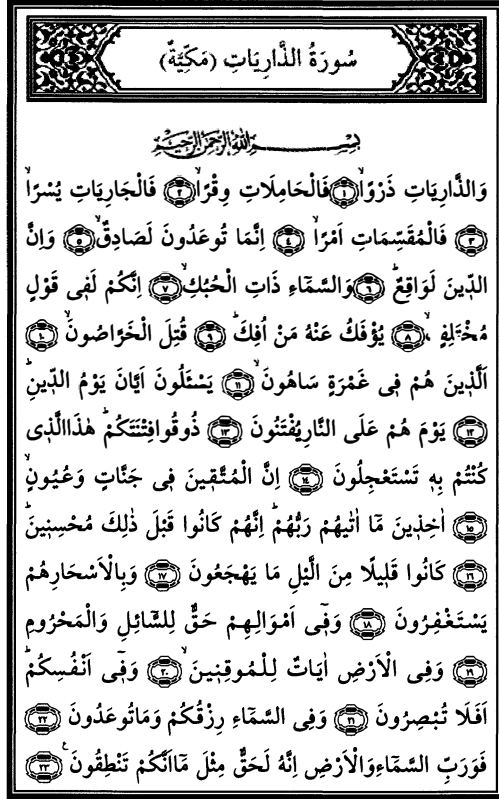 سُورَةُ الذَّارِيَاتِ (مَكِّيَّةٌ)
بِسْمِ اللّٰهِ الرَّحْمٰنِ الرَّحِيمِ
وَالذَّارِيَاتِ ذَرْوًاۙ ﴿١﴾ فَالْحَامِلَاتِ وِقْرًاۙ ﴿٢﴾ فَالْجَارِيَاتِ يُسْرًاۙ
﴿٣﴾ فَالْمُقَسِّمَاتِ اَمْرًاۙ ﴿٤﴾ اِنَّمَا تُوعَدُونَ لَصَادِقٌۙ ﴿٥﴾ وَاِنَّ
الدّ۪ينَ لَوَاقِعٌۜ ﴿٦﴾ وَالسَّمَٓاءِ ذَاتِ الْحُبُكِۙ ﴿٧﴾ اِنَّكُمْ لَف۪ي قَوْلٍ
مُخْتَلِفٍۙ ﴿٨﴾ يُؤْفَكُ عَنْهُ مَنْ اُفِكَۜ ﴿٩﴾ قُتِلَ الْخَرَّاصُونَۙ ﴿١٠﴾
اَلَّذ۪ينَ هُمْ ف۪ي غَمْرَةٍ سَاهُونَۙ ﴿١١﴾ يَسْـَٔلُونَ اَيَّانَ يَوْمُ الدّ۪ينِۜ
﴿١٢﴾ يَوْمَ هُمْ عَلَى النَّارِ يُفْتَنُونَ ﴿١٣﴾ ذُوقُوا فِتْنَتَكُمْۜ هٰذَا الَّذ۪ي
كُنْتُمْ بِه۪ تَسْتَعْجِلُونَ ﴿١٤﴾ اِنَّ الْمُتَّق۪ينَ ف۪ي جَنَّاتٍ وَعُيُونٍۙ
﴿١٥﴾ اٰخِذ۪ينَ مَٓا اٰتٰيهُمْ رَبُّهُمْۜ اِنَّهُمْ كَانُوا قَبْلَ ذٰلِكَ مُحْسِن۪ينَۜ
﴿١٦﴾ كَانُوا قَل۪يلًا مِنَ الَّيْلِ مَا يَهْجَعُونَ ﴿١٧﴾ وَبِالْاَسْحَارِ هُمْ
يَسْتَغْفِرُونَ ﴿١٨﴾ وَف۪ٓي اَمْوَالِهِمْ حَقٌّ لِلسَّٓائِلِ وَالْمَحْرُومِ
﴿١٩﴾ وَفِي الْاَرْضِ اٰيَاتٌ لِلْمُوقِن۪ينَۙ ﴿٢٠﴾ وَف۪ٓي اَنْفُسِكُمْۜ
اَفَلَا تُبْصِرُونَ ﴿٢١﴾ وَفِي السَّمَٓاءِ رِزْقُكُمْ وَمَا تُوعَدُونَ ﴿٢٢﴾
فَوَرَبِّ السَّمَٓاءِ وَالْاَرْضِ اِنَّهُ لَحَقٌّ مِثْلَ مَٓا اَنَّكُمْ تَنْطِقُونَ۟ ﴿٢٣﴾